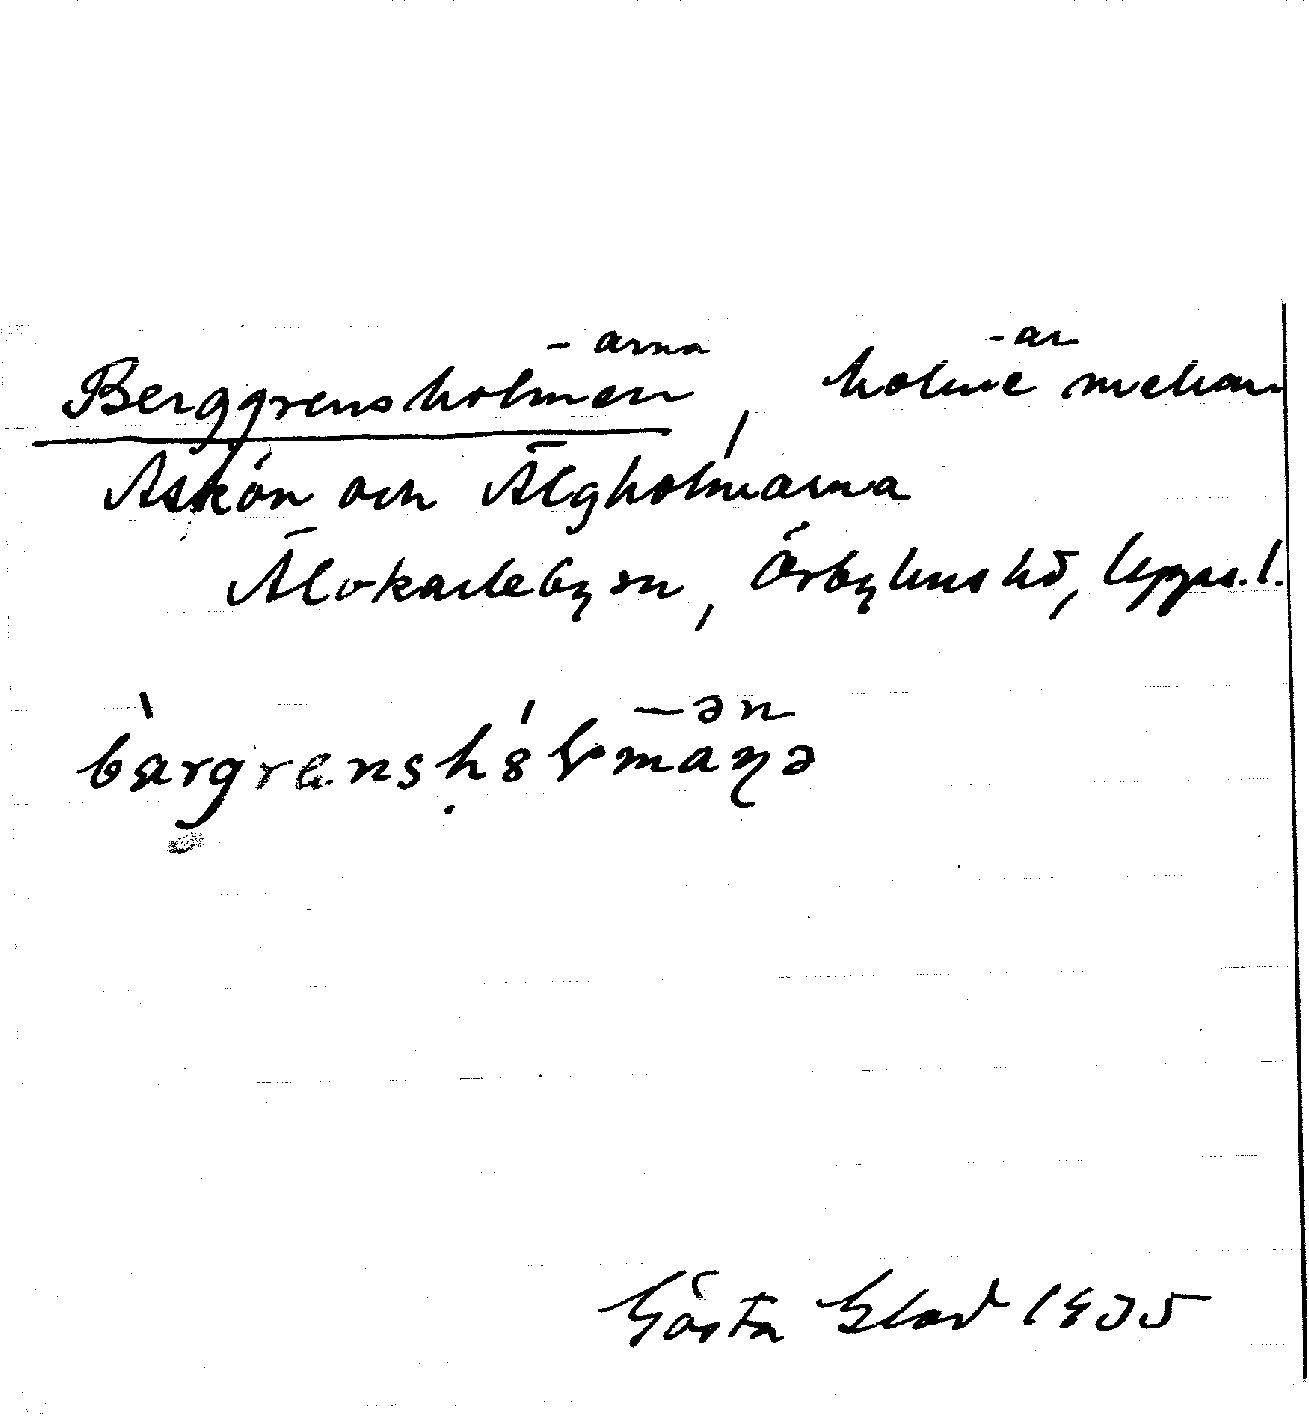 -arna -ar
Berggrensholmen, holme mellan
Askön och Älgholmarna
Älvkarleby sn, Örbyhus hd, Upps. l.
-ən
bargrenshol
Gösta Glad 1935